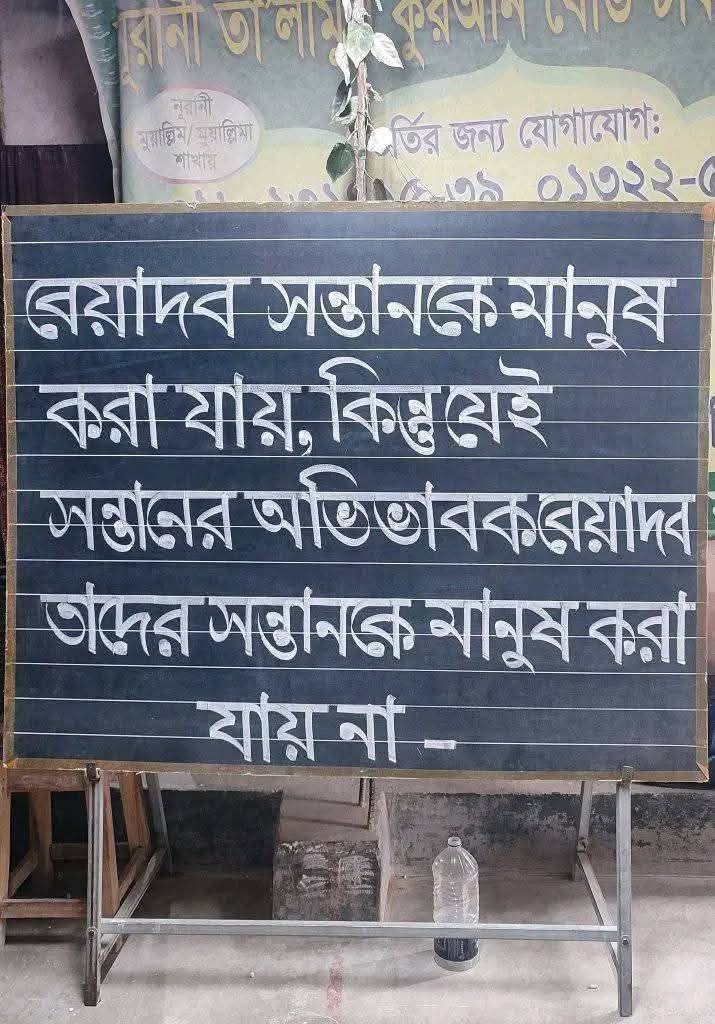 নূরানী তা'লীমু কুরআন বোর্ড
নূরানী
মুয়াল্লিম/মুয়াল্লিমা
শাখায়
র্তির জন্য যোগাযোগ:
০১৩২২-৫
বেয়াদব সন্তানকে মানুষ
করা যায়, কিন্তু যেই
সন্তানের অভিভাবক বেয়াদব
তাদের সন্তানকে মানুষ করা
যায় না -